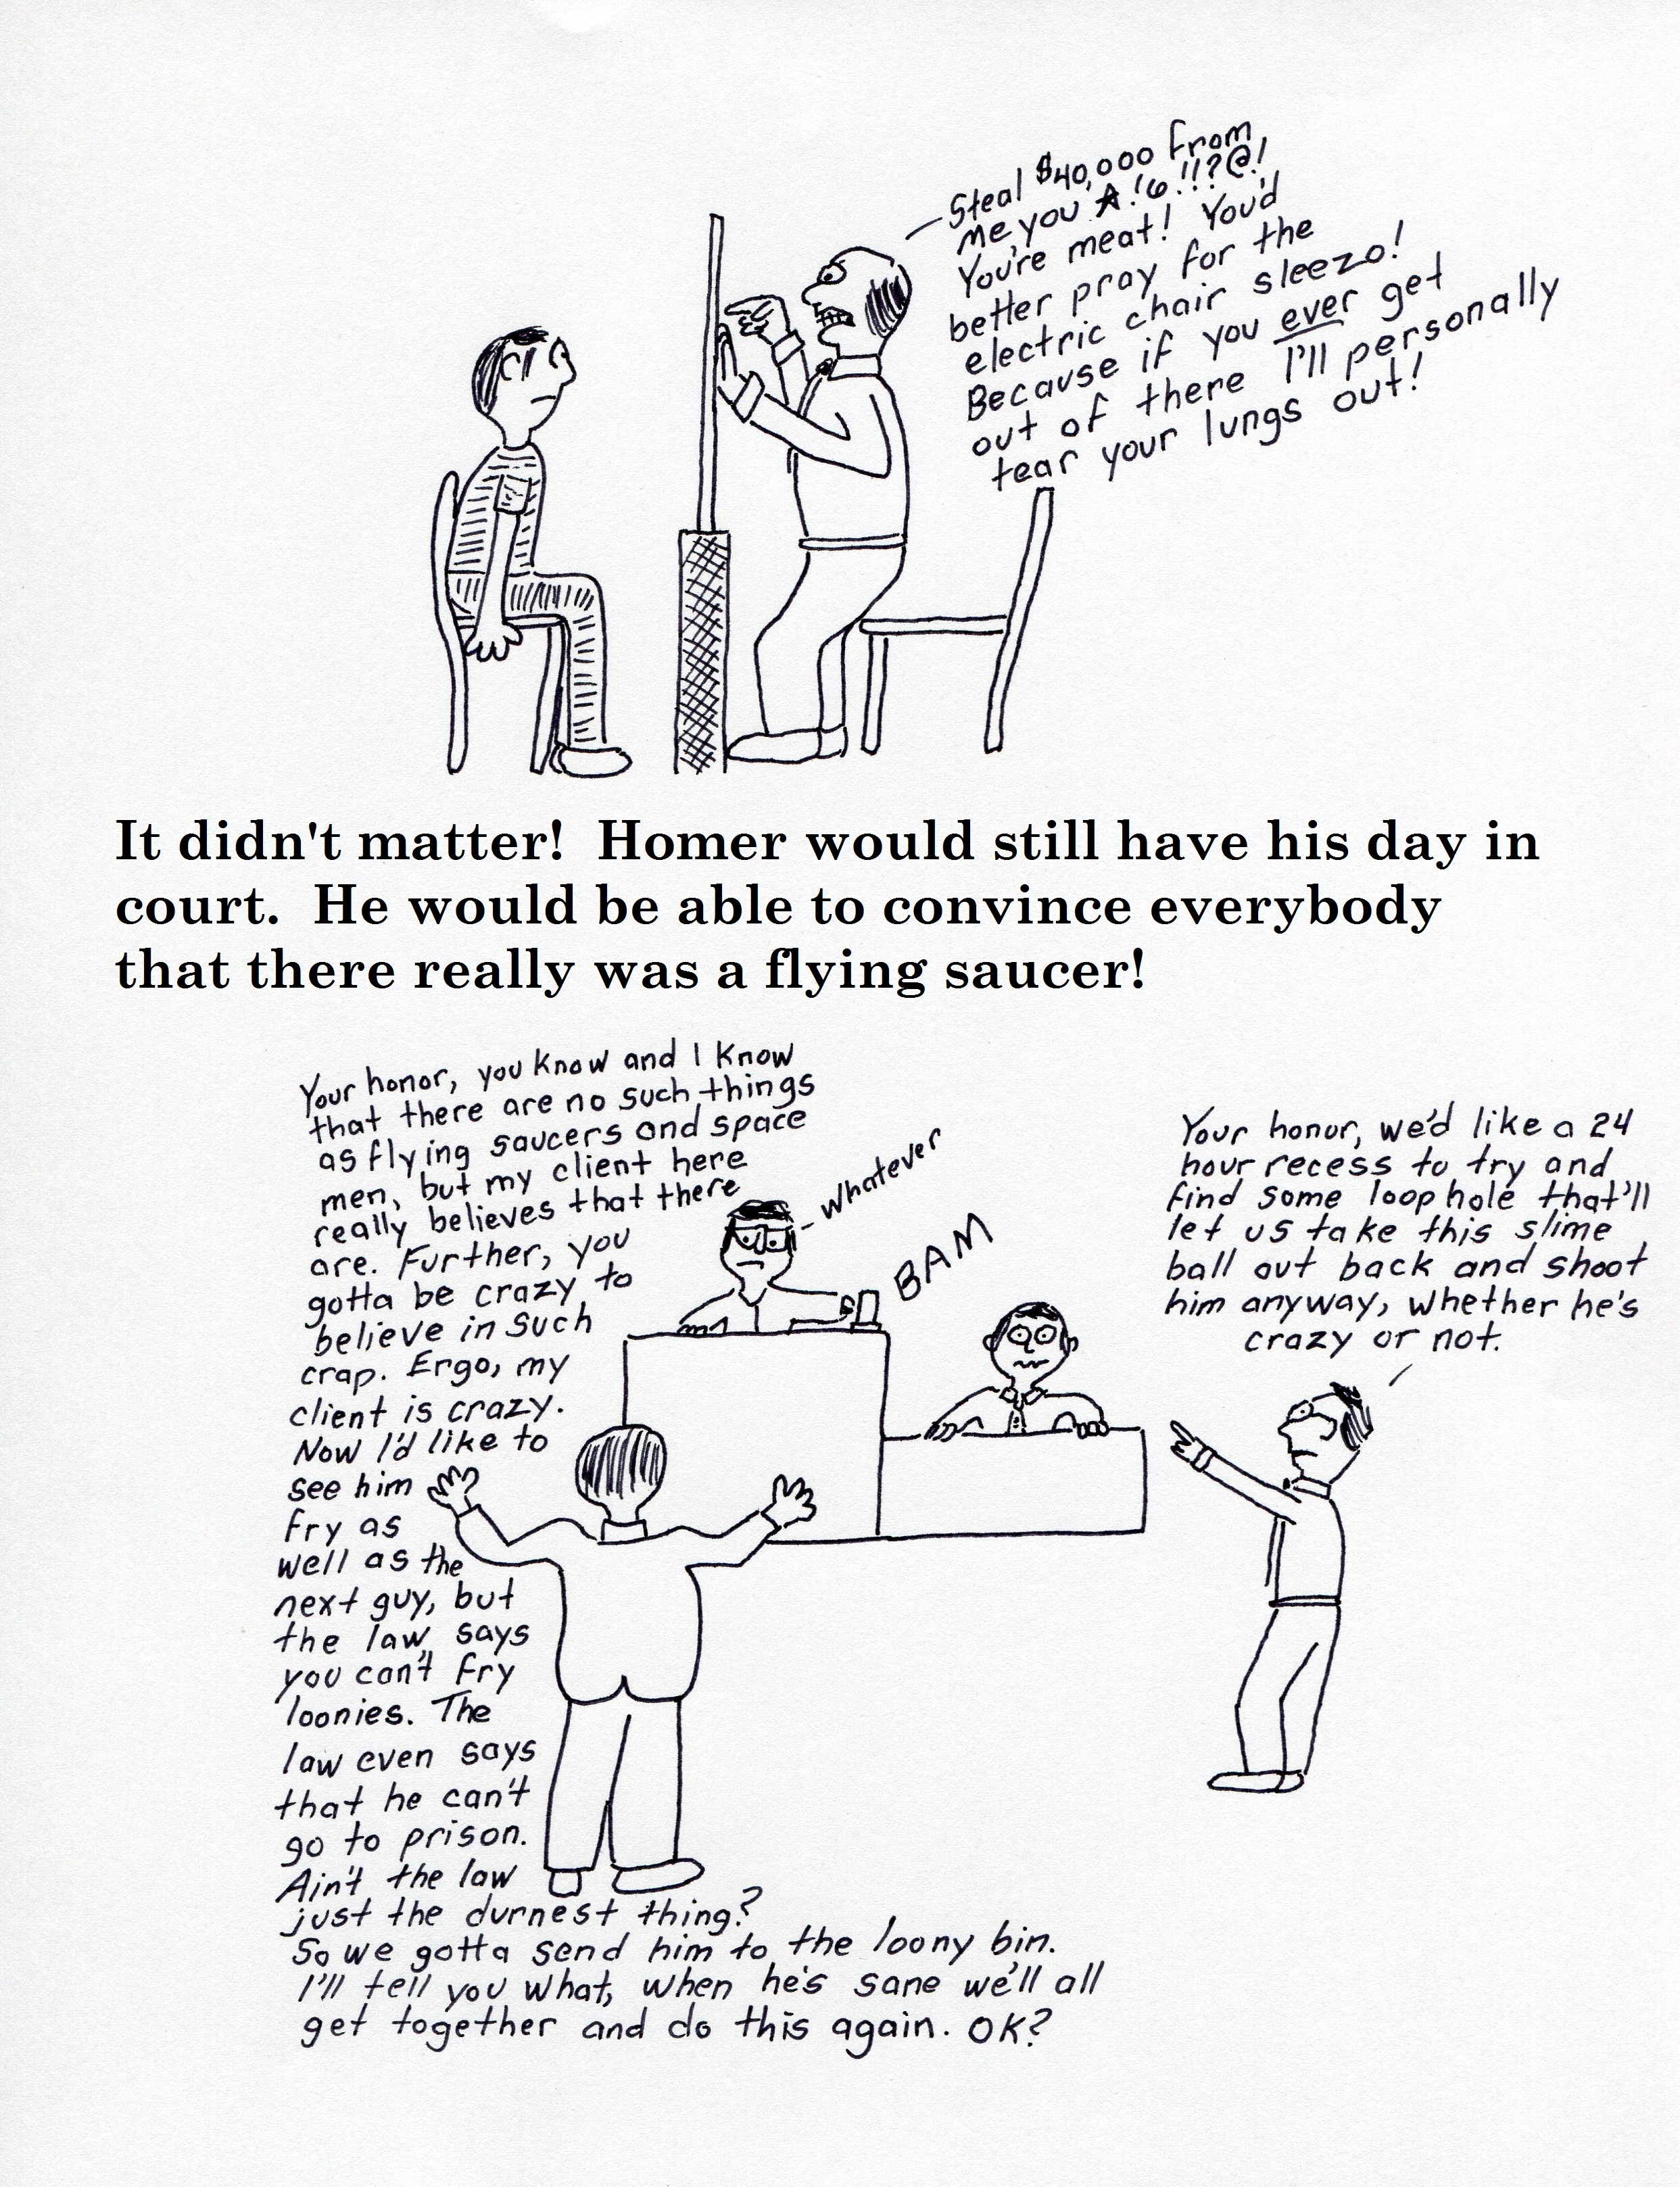 Steal $40,000 from
me, you ★!6.!!?@!
You're meat! You'd
better pray for the
electric chair sleezo!
Because if you ever get
out of there I'll personally
tear your lungs out!
It didn't matter!  Homer would still have his day in
court.  He would be able to convince everybody
that there really was a flying saucer!
Your honor, you know and I know
that there are no such things
as flying saucers and space
men, but my client here
really believes that there
are. Further, you
gotta be crazy to
believe in such
crap. Ergo, my
client is crazy.
Now I'd like to
see him
fry as
well as the
next guy, but
the law says
you can't fry
loonies. The
law even says
that he can't
go to prison.
Ain't the law
just the durnest thing?
So we gotta send him to the loony bin.
I'll tell you what, when he's sane we'll all
get together and do this again. OK?
Whatever
BAM
Your honor, we'd like a 24
hour recess to try and
find some loop hole that'll
let us take this slime
ball out back and shoot
him anyway, whether he's
crazy or not.